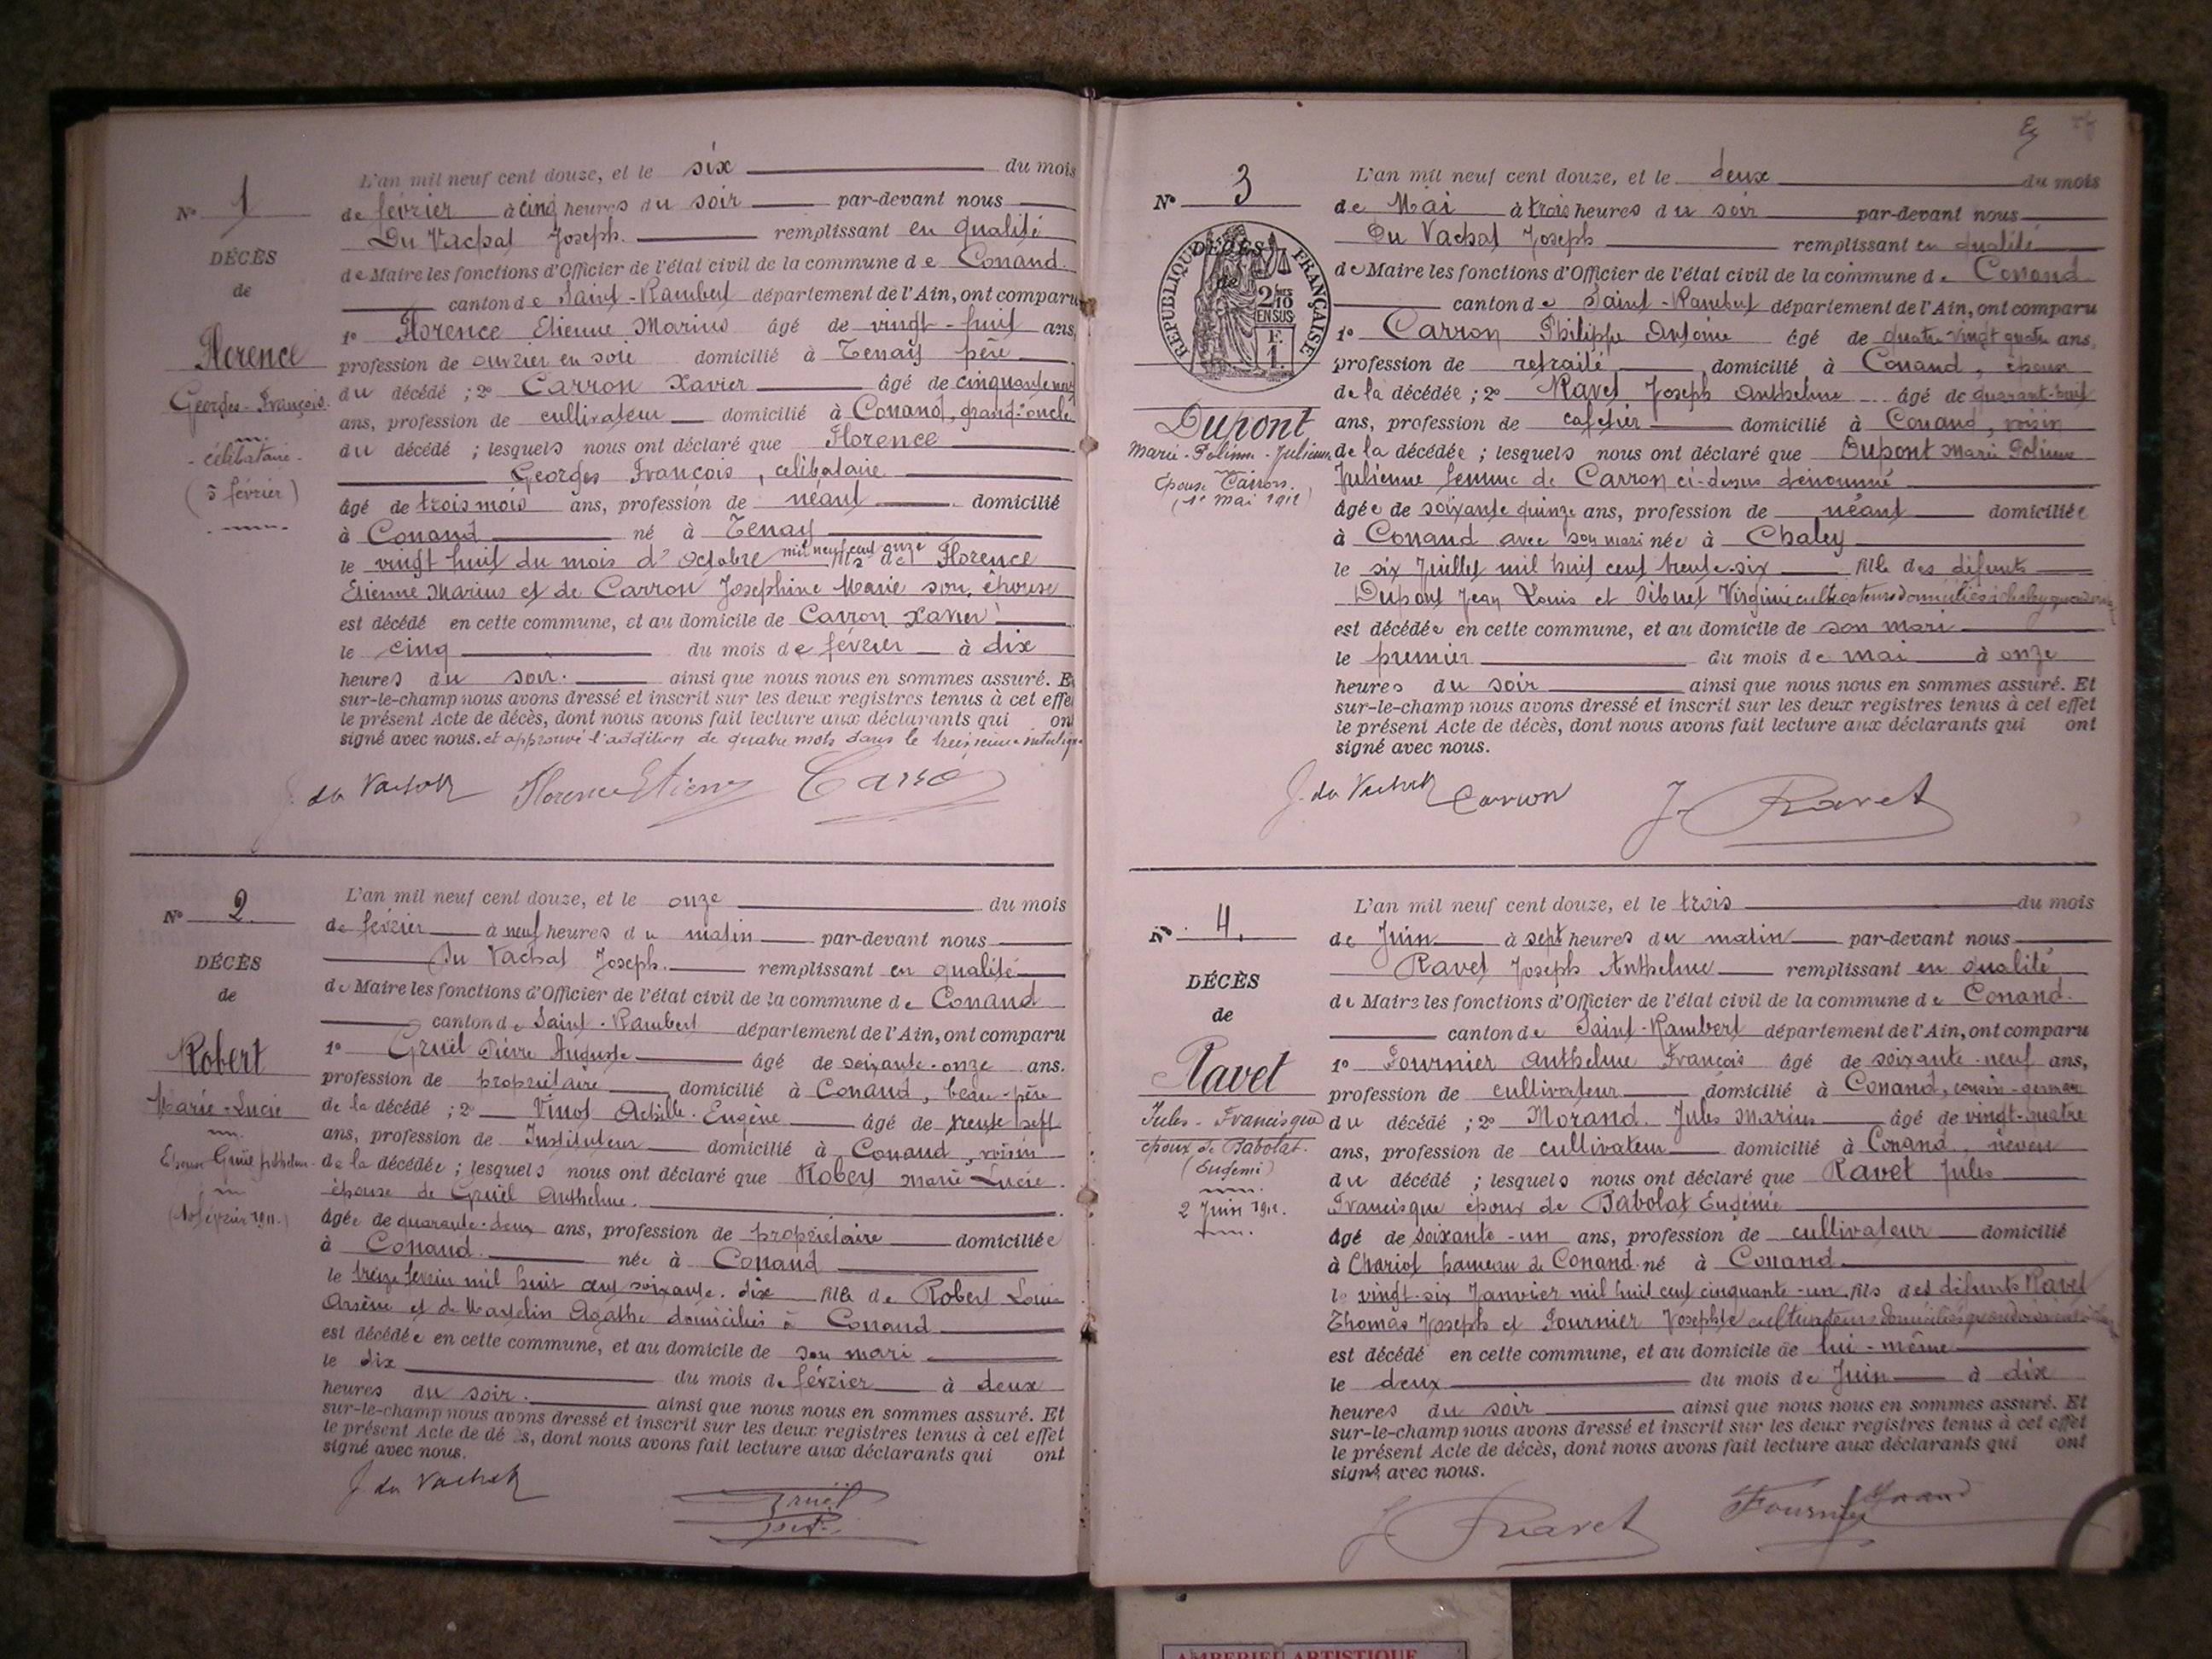 N° 1
DÉCÈS
de
Florence
Georges-François.
- célibataire -
(5 février)
L'an mil neuf cent douze, et le six du mois
de février à cinq heures du soir par-devant nous
Du Vachat Joseph. remplissant en qualité
de Maire les fonctions d'Officier de l'état civil de la commune de Conand.
canton de Saint-Rambert département de l'Ain, ont comparu
1° Florence Etienne Marius âgé de vingt-huit ans,
profession de ouvrier en soie domicilié à Tenay père
du décédé ; 2° Carron Xavier âgé de cinquante neuf
ans, profession de cultivateur domicilié à Conand, grand-oncle
du décédé ; lesquels nous ont déclaré que Florence
Georges François, célibataire
âgé de trois mois ans, profession de néant domicilié
à Conand né à Tenay
le vingt huit du mois d'octobre mil neuf cent onze fils de Florence
Etienne Marius et de Carron Josephine Marie son épouse
est décédé en cette commune, et au domicile de Carron Xavier
le cinq du mois de février à dix
heures du soir. ainsi que nous nous en sommes assuré. Et
sur-le-champ nous avons dressé et inscrit sur les deux registres tenus à cet effet
le présent Acte de décès, dont nous avons fait lecture aux déclarants qui ont
signé avec nous. et approuvé l'addition de quatre mots dans le treizième interligne
J. du Vachat Florence Etienne Carro
N° 2.
DÉCÈS
de
Robert
Marie-Lucie
Epouse Gruel Anthelme.
(10 février 1911.)
L'an mil neuf cent douze, et le onze du mois
de février à neuf heures du matin par-devant nous
Du Vachat Joseph. remplissant en qualité
de Maire les fonctions d'Officier de l'état civil de la commune de Conand
canton de Saint-Rambert département de l'Ain, ont comparu
1° Gruel Pierre Auguste âgé de soixante-onze ans.
profession de propriétaire domicilié à Conand, beau-père
de la décédé ; 2° Vinot Achille-Eugène âgé de trente sept
ans, profession de Instituteur domicilié à Conand, voisin
de la décédée ; lesquels nous ont déclaré que Robert Marie-Lucie.
épouse de Gruel Anthelme.
âgée de quarante-deux ans, profession de propriétaire domiciliée
à Conand. née à Conand
le treize février mil huit cent soixante-dix fille de Robert Louis
Arsène et de Agathe domiciliés à Conand
est décédée en cette commune, et au domicile de son mari
le dix du mois de février à deux
heures du soir. ainsi que nous nous en sommes assuré. Et
sur-le-champ nous avons dressé et inscrit sur les deux registres tenus à cet effet
le présent Acte de dé s, dont nous avons fait lecture aux déclarants qui ont
signé avec nous.
J. du Vachat Gruel
N° 3
RÉPUBLIQUE FRANÇAISE
DÉCÈS
de
2/10 EN SUS
F. 1.
Dupont
Marie-Poline-Julienne
épouse Carron.
(1er mai 1912)
L'an mil neuf cent douze, et le deux du mois
de Mai à trois heures du soir par-devant nous
Du Vachat Joseph remplissant en qualité
de Maire les fonctions d'Officier de l'état civil de la commune de Conand
canton de Saint-Rambert département de l'Ain, ont comparu
1° Carron Philippe Antoine âgé de quatre vingt quatre ans,
profession de retraité domicilié à Conand, époux
de la décédée ; 2° Ravet Joseph Anthelme âgé de quarante-huit
ans, profession de cafetier domicilié à Conand, voisin
de la décédée ; lesquels nous ont déclaré que Dupont Marie Poline
Julienne femme de Carron ci-dessus dénommé
âgée de soixante quinze ans, profession de néant domiciliée
à Conand avec son mari née à Chaley
le six Juillet mil huit cent trente-six fille des défunts
Dupont Jean Louis et Sibuet Virginie cultivateurs domiciliés à Chaley
est décédée en cette commune, et au domicile de son mari
le premier du mois de mai à onze
heures du soir ainsi que nous nous en sommes assuré. Et
sur-le-champ nous avons dressé et inscrit sur les deux registres tenus à cet effet
le présent Acte de décès, dont nous avons fait lecture aux déclarants qui ont
signé avec nous.
J. du Vachat Carron J. Ravet
N° 4.
DÉCÈS
de
Ravet
Jules-Francisque
époux de Babolat.
(Eugénie)
2 Juin 1912.
L'an mil neuf cent douze, et le trois du mois
de Juin à sept heures du matin par-devant nous
Ravet Joseph Anthelme remplissant en qualité
de Maire les fonctions d'Officier de l'état civil de la commune de Conand.
canton de Saint-Rambert département de l'Ain, ont comparu
1° Fournier Anthelme François âgé de soixante-neuf ans,
profession de cultivateur domicilié à Conand, cousin-germain
du décédé ; 2° Morand. Jules Marius âgé de vingt-quatre
ans, profession de cultivateur domicilié à Conand, neveu
du décédé ; lesquels nous ont déclaré que Ravet Jules
Francisque époux de Babolat Eugénie
âgé de soixante-un ans, profession de cultivateur domicilié
à Chariot hameau de Conand né à Conand
le vingt-six Janvier mil huit cent cinquante-un fils des défunts Ravet
Thomas Joseph et Fournier Josephte cultivateurs domiciliés
est décédé en cette commune, et au domicile de lui-même
le deux du mois de Juin à dix
heures du soir ainsi que nous nous en sommes assuré. Et
sur-le-champ nous avons dressé et inscrit sur les deux registres tenus à cet effet
le présent Acte de décès, dont nous avons fait lecture aux déclarants qui ont
signé avec nous.
J. Ravet Fournier Morand
AMBERIEU ARTISTIQUE